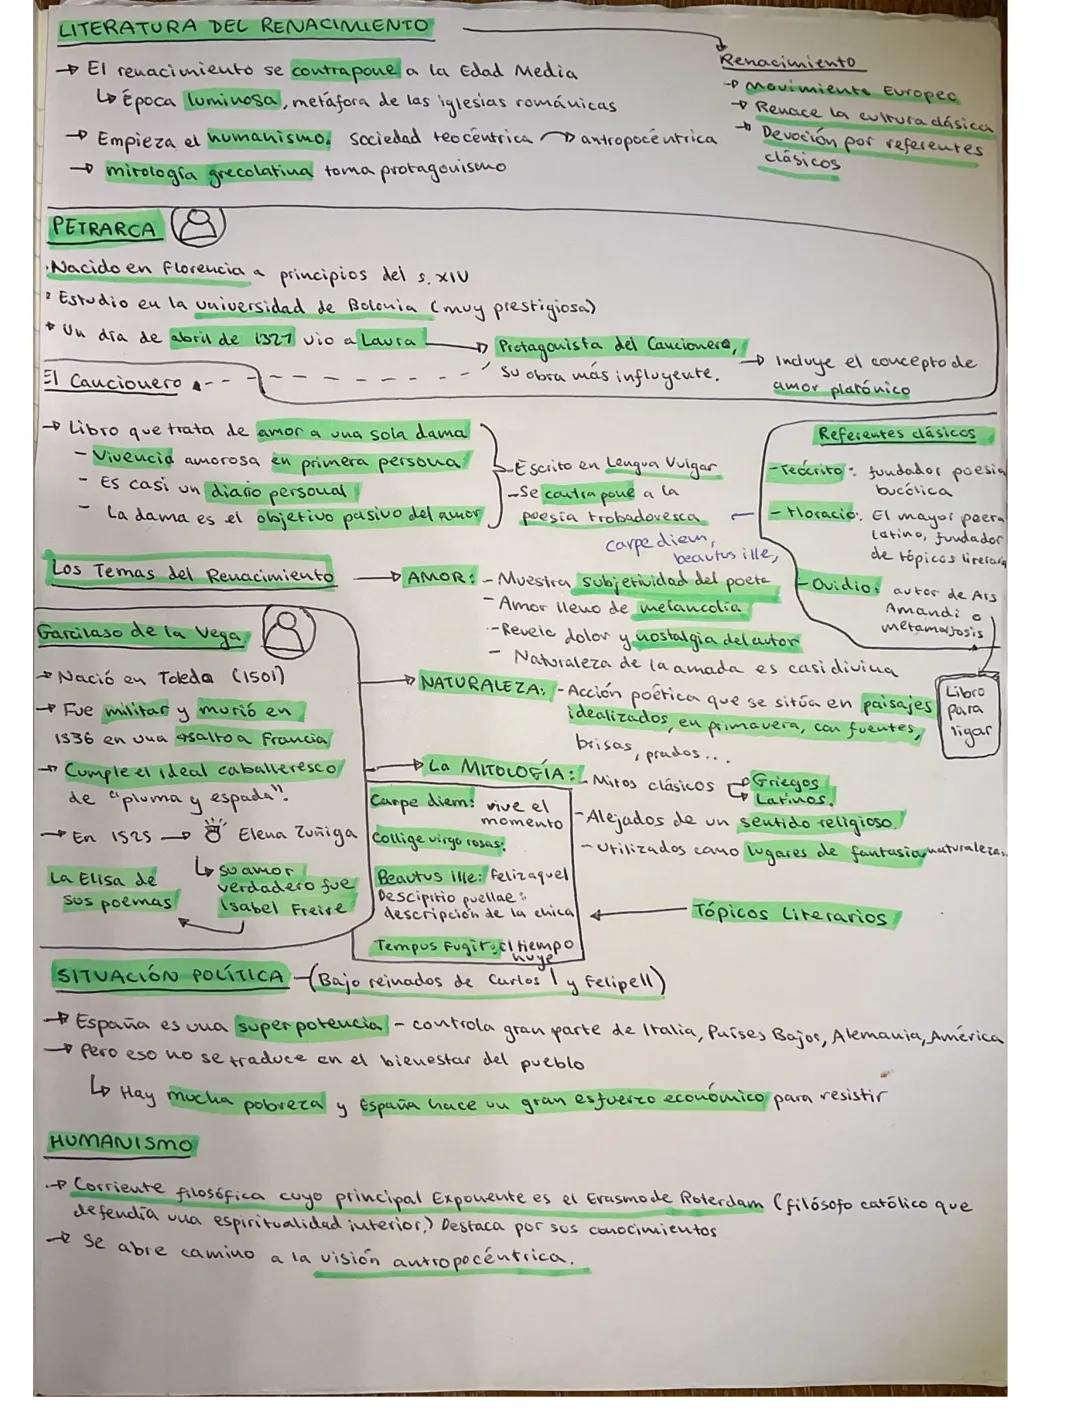 LITERATURA DEL RENACIMIENTO
→ El renacimiento se contrapone a la Edad Media
↳ Época luminosa, metáfora de las iglesias románicas
→ Empieza el humanismo. Sociedad teocéntrica → antropocéntrica
→ mitología grecolatina toma protagonismo
Renacimiento
→ Movimiento Europeo
→ Renace la cultura clásica
→ Devoción por referentes
clásicos
PETRARCA
· Nacido en Florencia a principios del s. XIV
· Estudio en la universidad de Bolonia (muy prestigiosa)
· Un día de abril de 1327 vio a Laura → Protagonista del Cancionero,
su obra más influyente.
→ Incluye el concepto de
amor platónico
El Cancionero
→ Libro que trata de amor a una sola dama
- Vivencia amorosa en primera persona
- Es casi un diario personal
- La dama es el objetivo pasivo del amor
- Escrito en Lengua Vulgar
- Se contrapone a la
poesía trobadoresca
Referentes clásicos
- Teócrito: fundador poesia
bucólica
- Horacio: El mayor poera
latino, fundador
de tópicos literaria
carpe diem,
beautus ille,
- Ovidio: autor de Ars
Amandi o
metamorfosis
Libro
para
ligar
Los Temas del Renacimiento
→ AMOR: - Muestra subjetividad del poeta
- Amor lleno de melancolía
- Revele dolor y nostalgia del autor
- Naturaleza de la amada es casi divina
→ NATURALEZA: - Acción poética que se sitúa en paisajes
idealizados, en primavera, con fuentes,
brisas, prados...
→ La MITOLOGÍA: - Mitos clásicos → Griegos
→ Latinos.
- Alejados de un sentido religioso
- Utilizados como lugares de fantasia, naturaleza..
Garcilaso de la Vega
→ Nació en Toledo (1501)
→ Fue militar y murió en
1536 en una asalto a Francia
→ Cumple el ideal caballeresco
de "pluma y espada".
→ En 1525 → Elena Zuñiga
↳ su amor
verdadero fue
Isabel Freire
La Elisa de
sus poemas
Carpe diem: vive el
momento
Collige virgo rosas:
Beautus Ille: Feliz aquel
Descipitio puellae:
descripción de la chica
Tempus Fugit: El tiempo
huye
Tópicos Literarios
SITUACIÓN POLÍTICA - (Bajo reinados de Carlos I y Felipe II)
→ España es una superpotencia - controla gran parte de Italia, Países Bajos, Alemania, América
→ Pero eso no se traduce en el bienestar del pueblo
↳ Hay mucha pobreza y España hace un gran esfuerzo económico para resistir
HUMANISMO
→ Corriente filosófica cuyo principal Exponente es el Erasmo de Roterdam (filósofo católico que
defendía una espiritualidad interior,) Destaca por sus conocimientos
→ Se abre camino a la visión antropocéntrica.